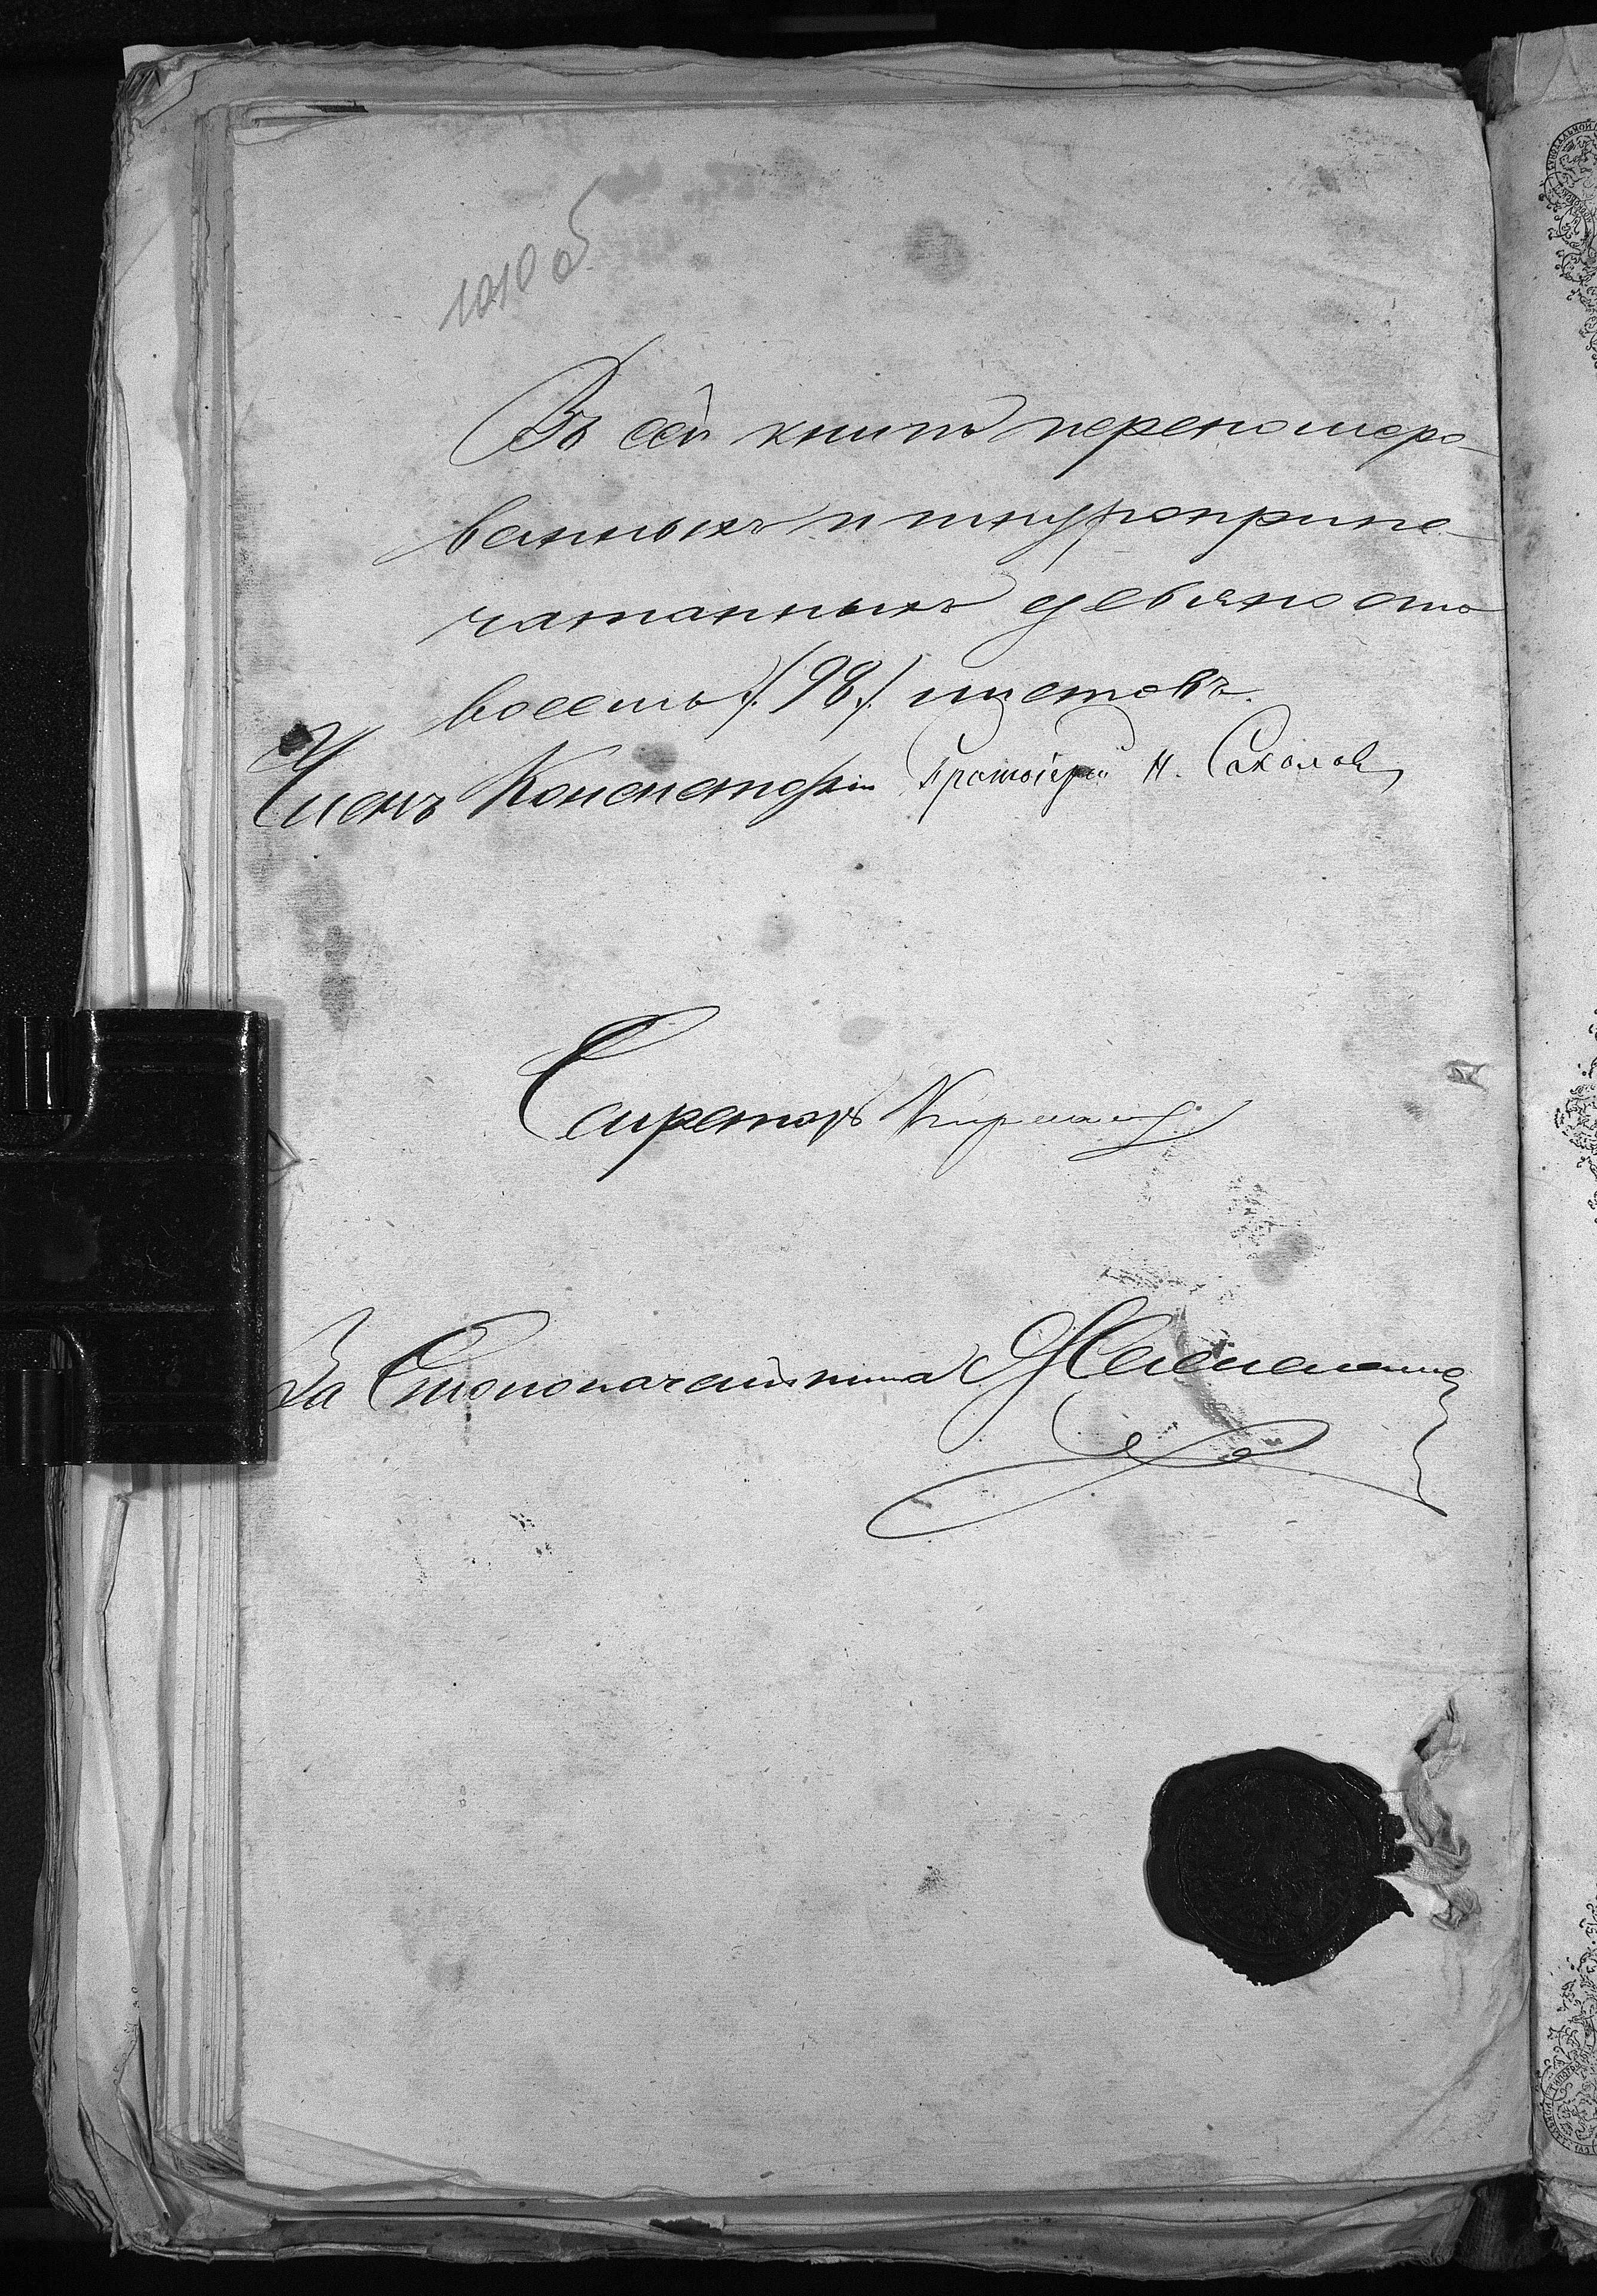 101об
Въ сей книгѣ перенумеро-
ванныхъ и шнуроприпе-
чатанныхъ девяносто
восемь /98/ листовъ.
Членъ Консисторіи Протоіерей Н. Соколовъ
Секретарь
За Столоначальника